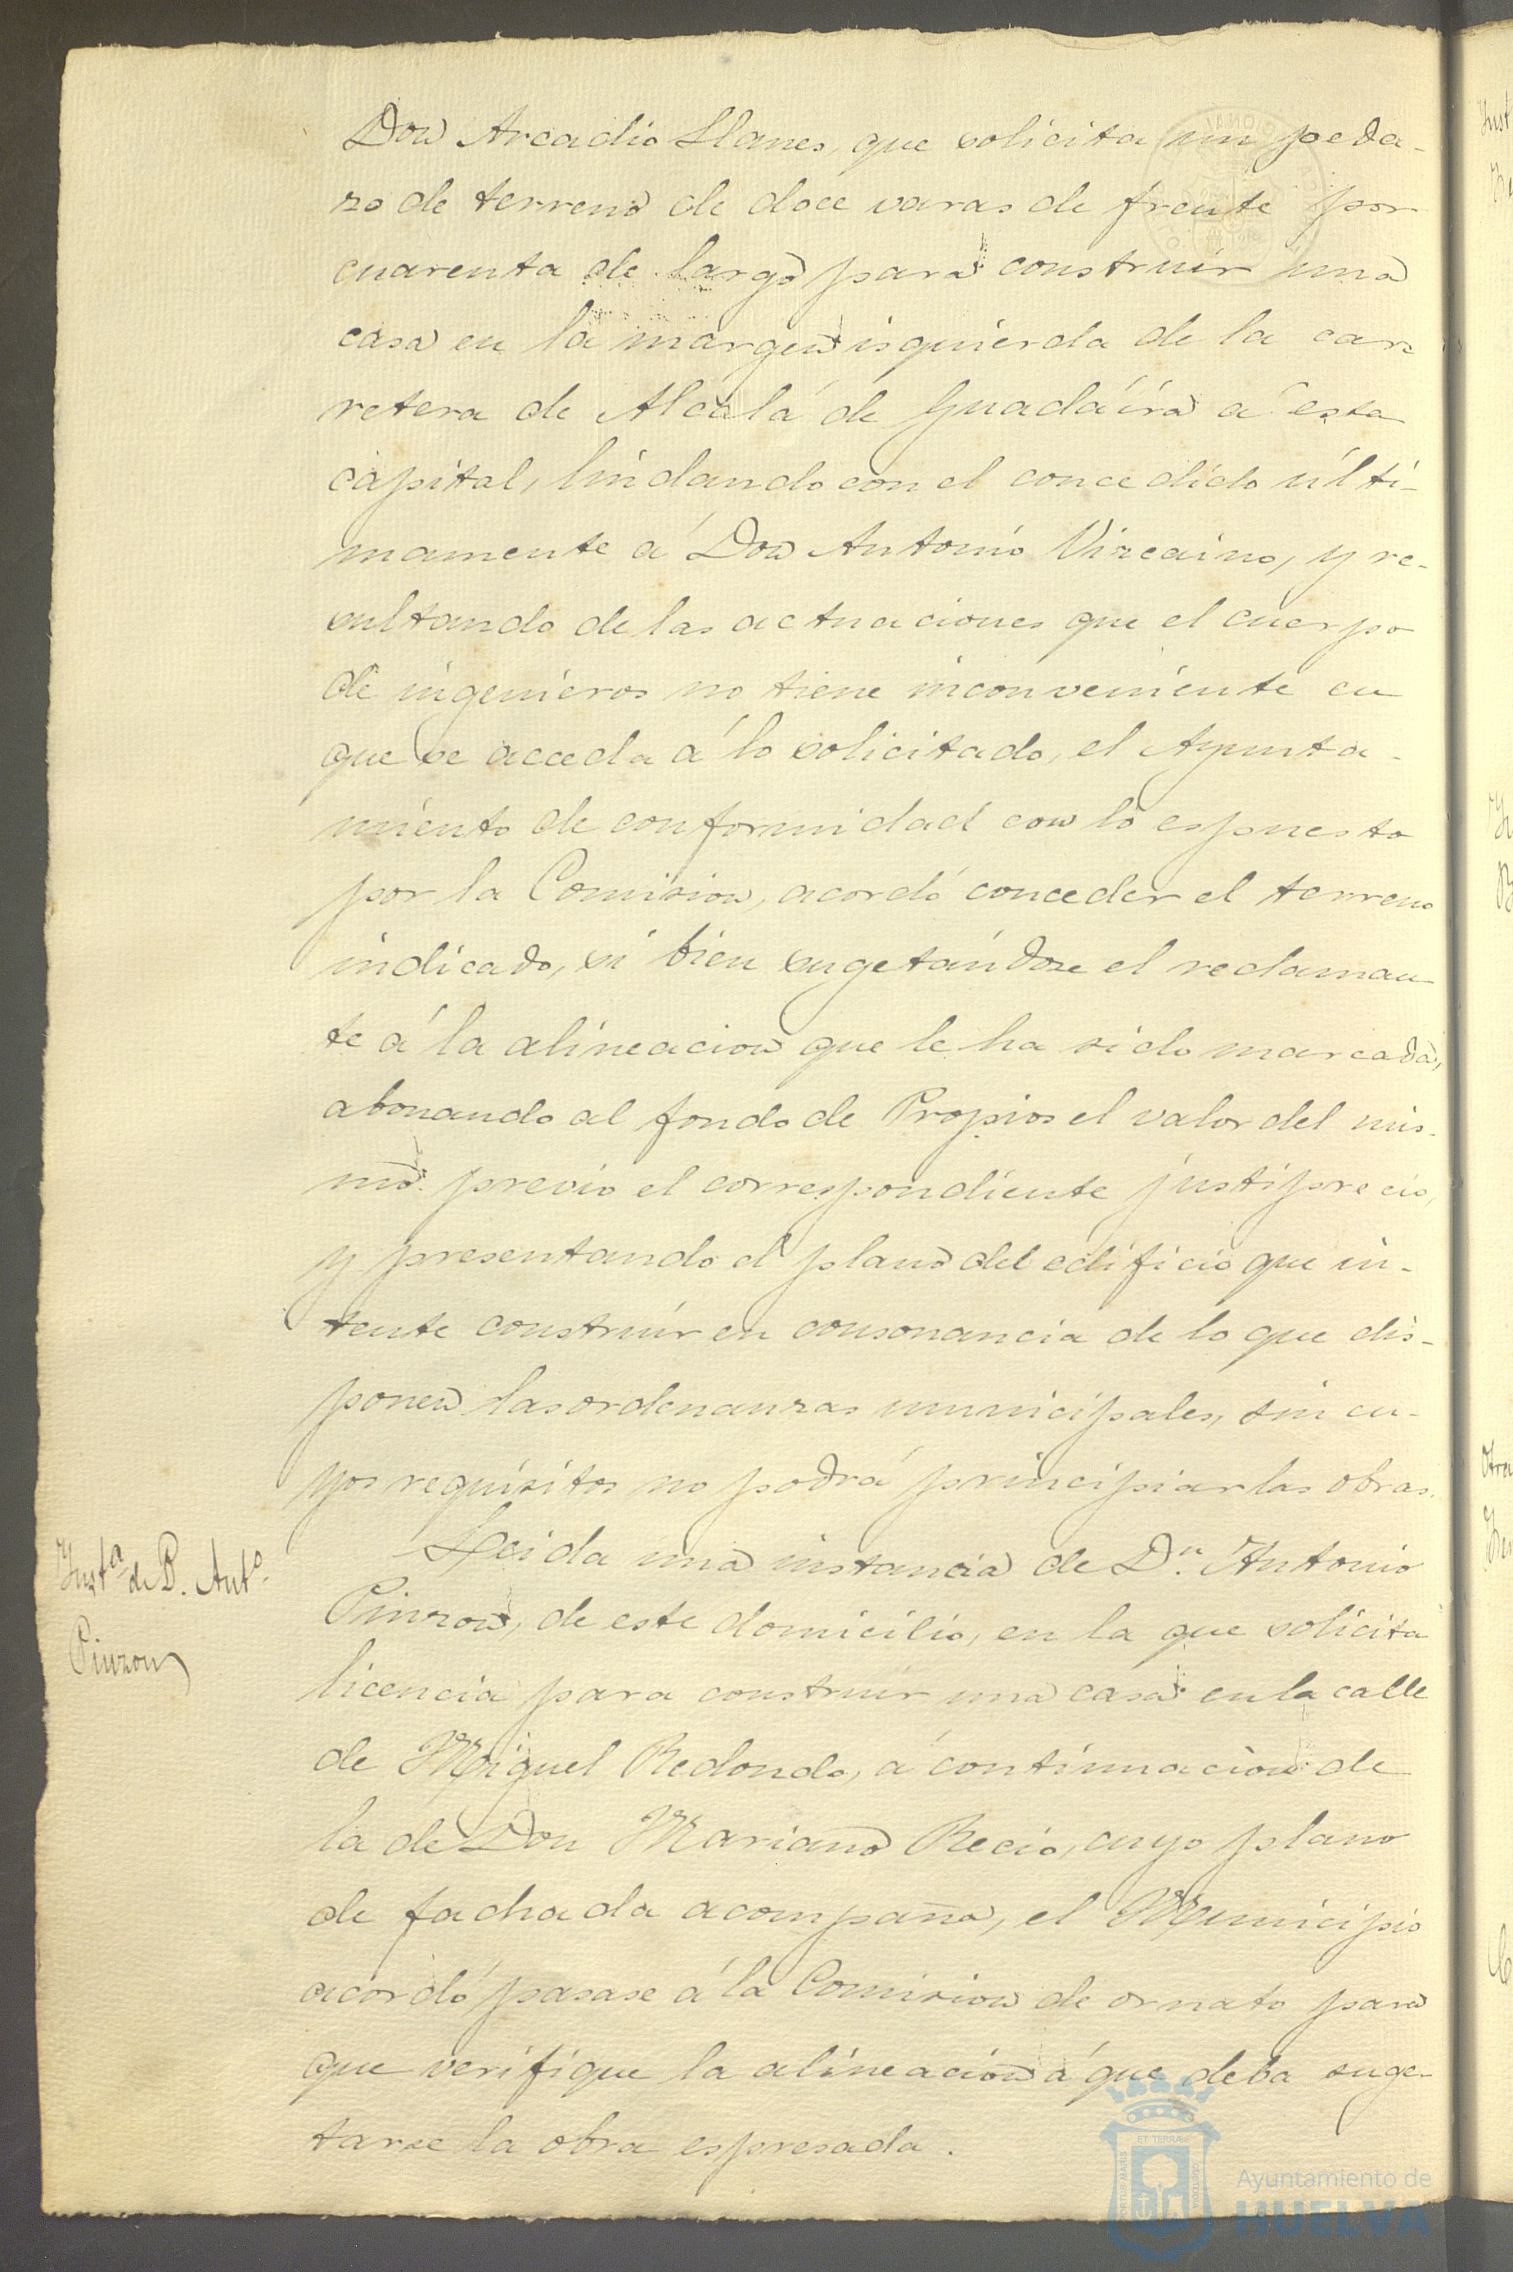 Don Arcadio Llanes, que solicita un peda-
zo de terreno de doce varas de frente por
cuarenta de largo para construir una
casa en la margen isquierda de la car-
retera de Alcalá de Guadáira á esta
capital, lindando con el concedido últi-
mamente á Don Antonio Vizcaino, y re-
sultando de las actuaciones que el cuerpo
de ingenieros no tiene inconveniente en
que se acceda á lo solicitado, el Ayunta-
miento de conformidad con lo espuesto
por la Comision, acordó conceder el terreno
indicado, si bien sugetándose el reclaman-
te á la alineacion que le ha sido marcada,
abonando al fondo de Propios el valor del mis-
mo previo el correspondiente justiprecio,
y presentando el plano del edificio que in-
tente construir en consonancia de lo que dis-
ponen las ordenanzas municipales, sin cu-
yos requisitos no podrá principiar las obras.
Insta. de D. Anto.
Pinzon
Leida una instancia de Dn. Antonio
Pinzon, de este domicilio, en la que solicita
licencia para construir una casa en la calle
de Miguel Redondo, á continuacion de
la de Don Mariano Recio, cuyo plano
de fachada acompaña, el Municipio
acordó pasase á la Comision de ornato para
que verifique la alineacion á que deba suge-
tarse la obra espresada.
Ayuntamiento de
HUELVA